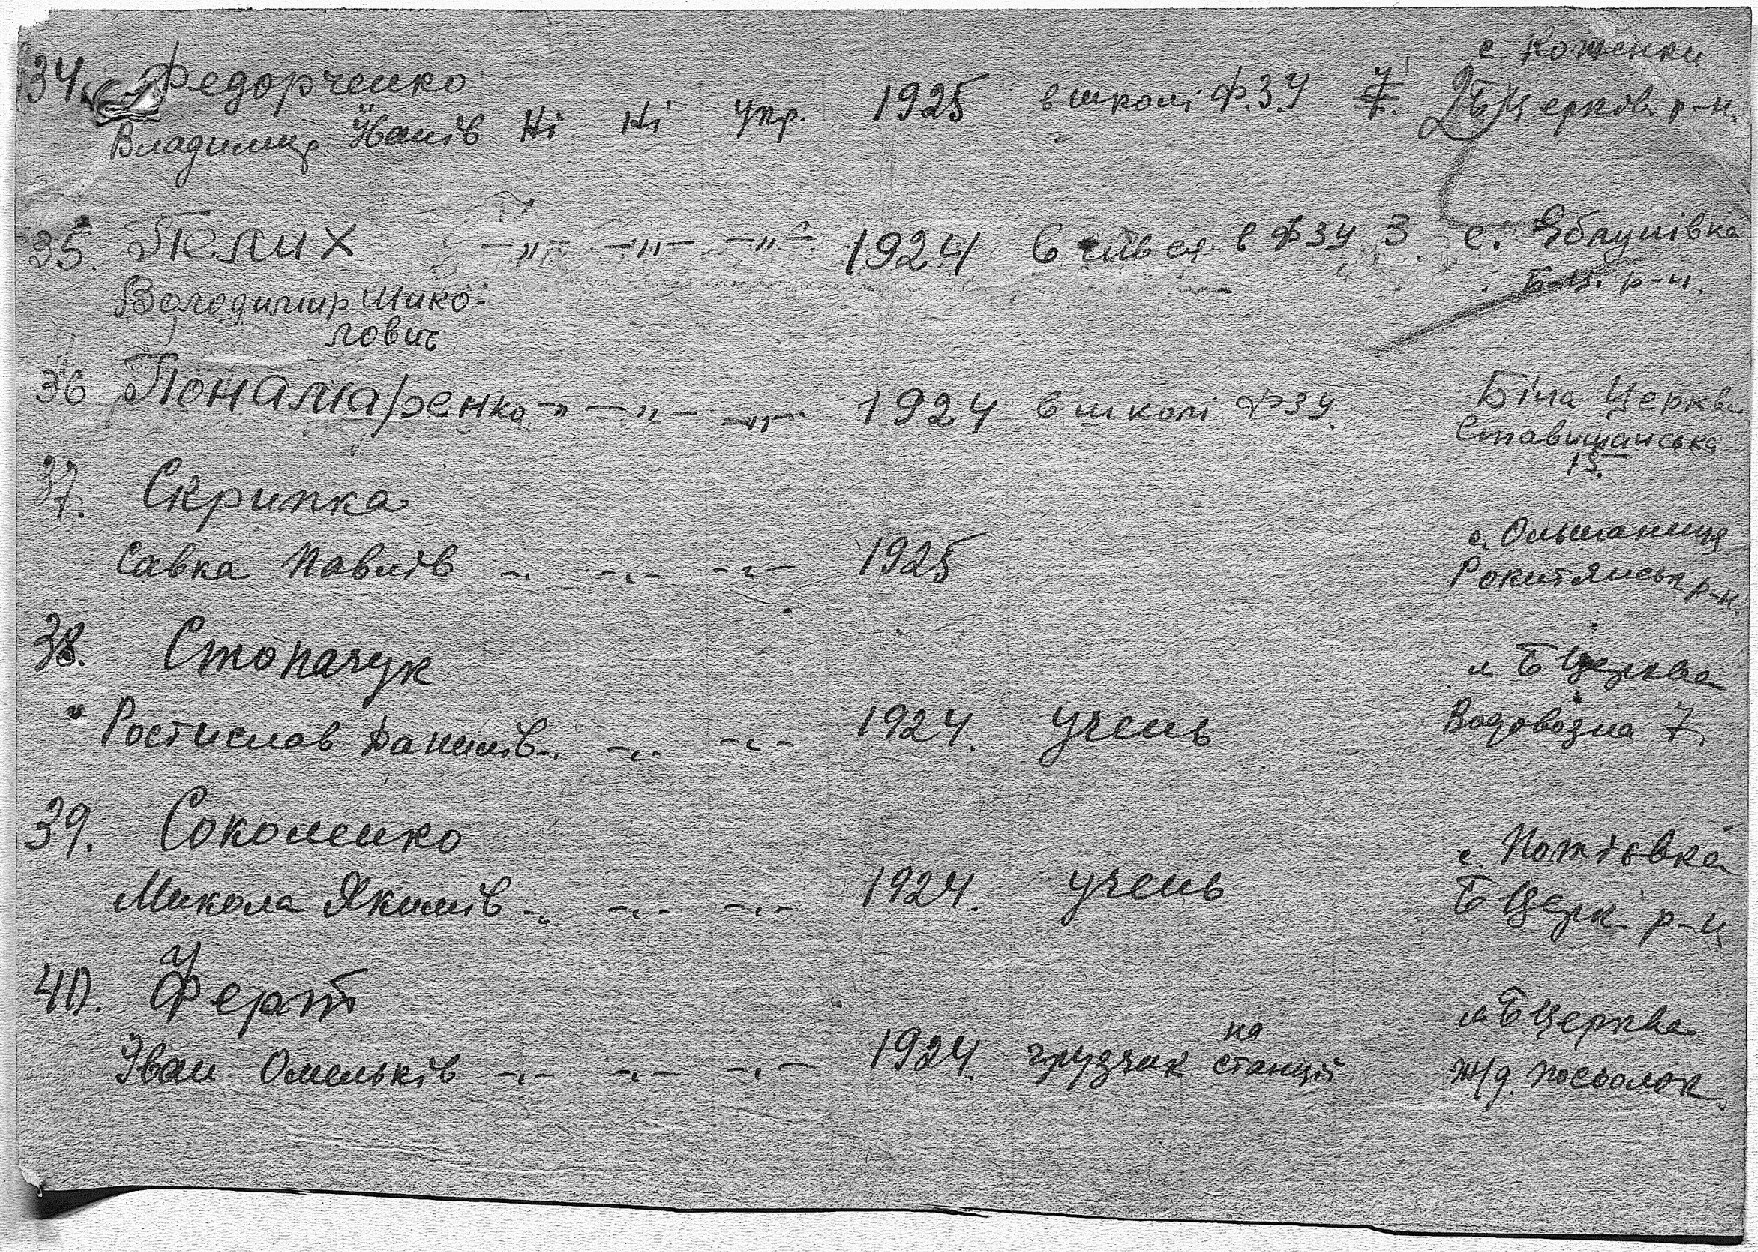 34. Федорченко с. Коженки
Владимир Іванів Ні Ні Укр. 1925 в школі Ф.З.У Б Церків. р-н.
35. Пелих —„— —„— —„— 1924 в ФЗУ З с. Яблунівка
Володимир Мико- Б.Ц. р-н.
лович
36 Понамаренко —„— —„— —„— 1924 в школі ФЗУ. Біла Церква
Ставищанська
15.
37. Скрипка с. Ольшаниця
Савка Павлів —„— —„— —„— 1925 Рокитянськ р-н.
38. Стопачук м Б Церква
Ростислав Данилів —„— —„— —„— 1924. учень Водовозна 7.
39. Соколенко с.
Микола Якимів —„— —„— —„— 1924. учень Б Церк. р-н
40. Ферт м Б Церква
Іван Омельків —„— —„— —„— 1924. грузчик на станції ж/д. посьолок.